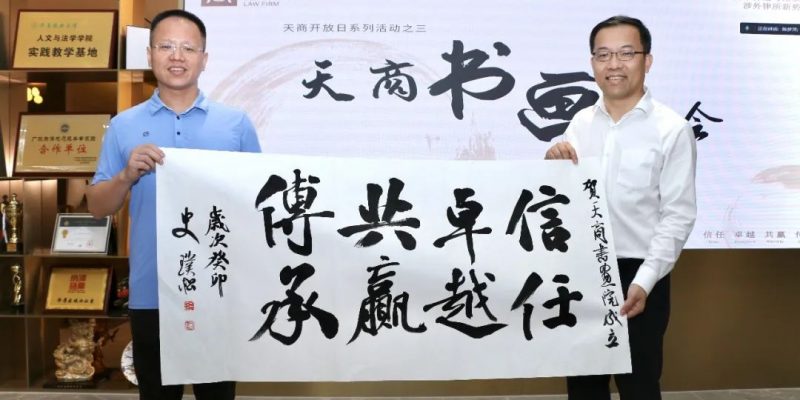 LAW FIRM
天商开放日系列活动之三
天商书画
会
涉外律所新势
信任 卓越 共赢
人文与法学学院
实践教学基地
合作单位
賀天商書畫院成立
信任
卓越
共赢
傳承
歲次癸卯
史